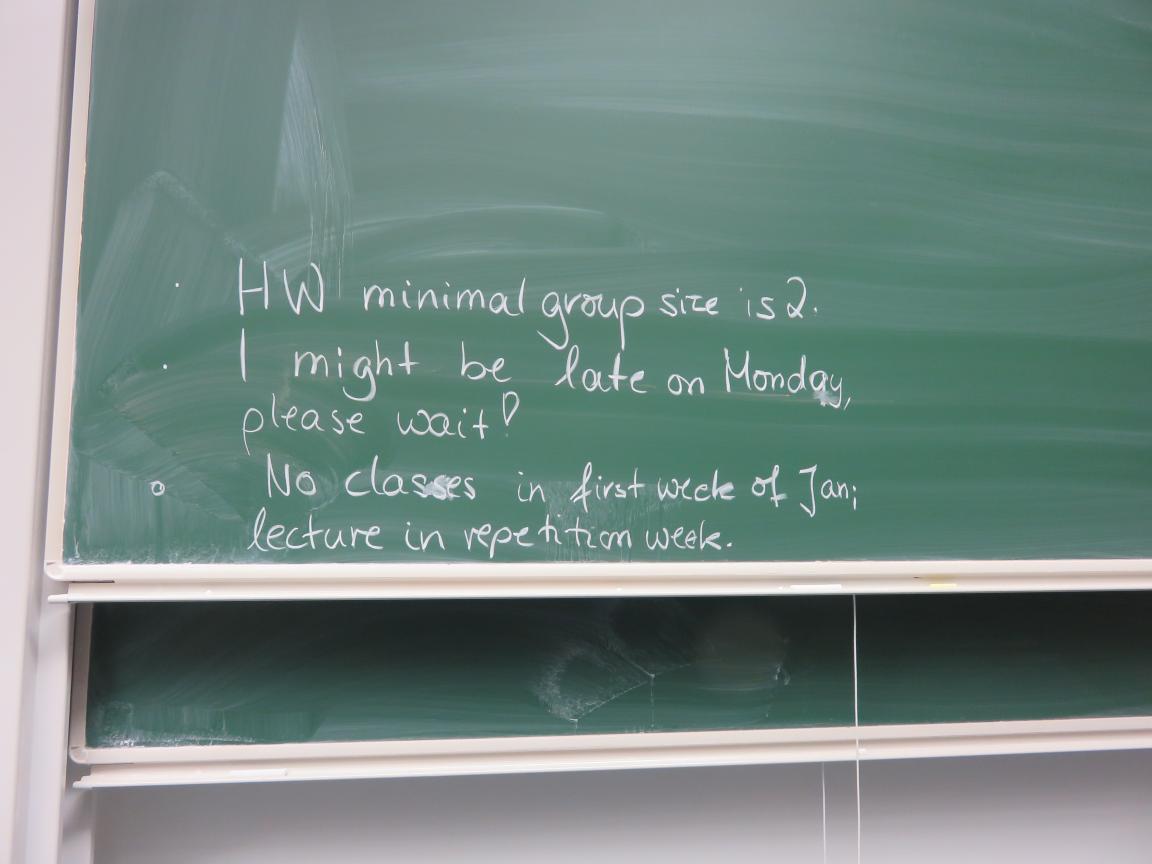 · HW minimal group size is 2.
· I might be late on Monday,
please wait!
∘ No classes in first week of Jan;
lecture in repetition week.